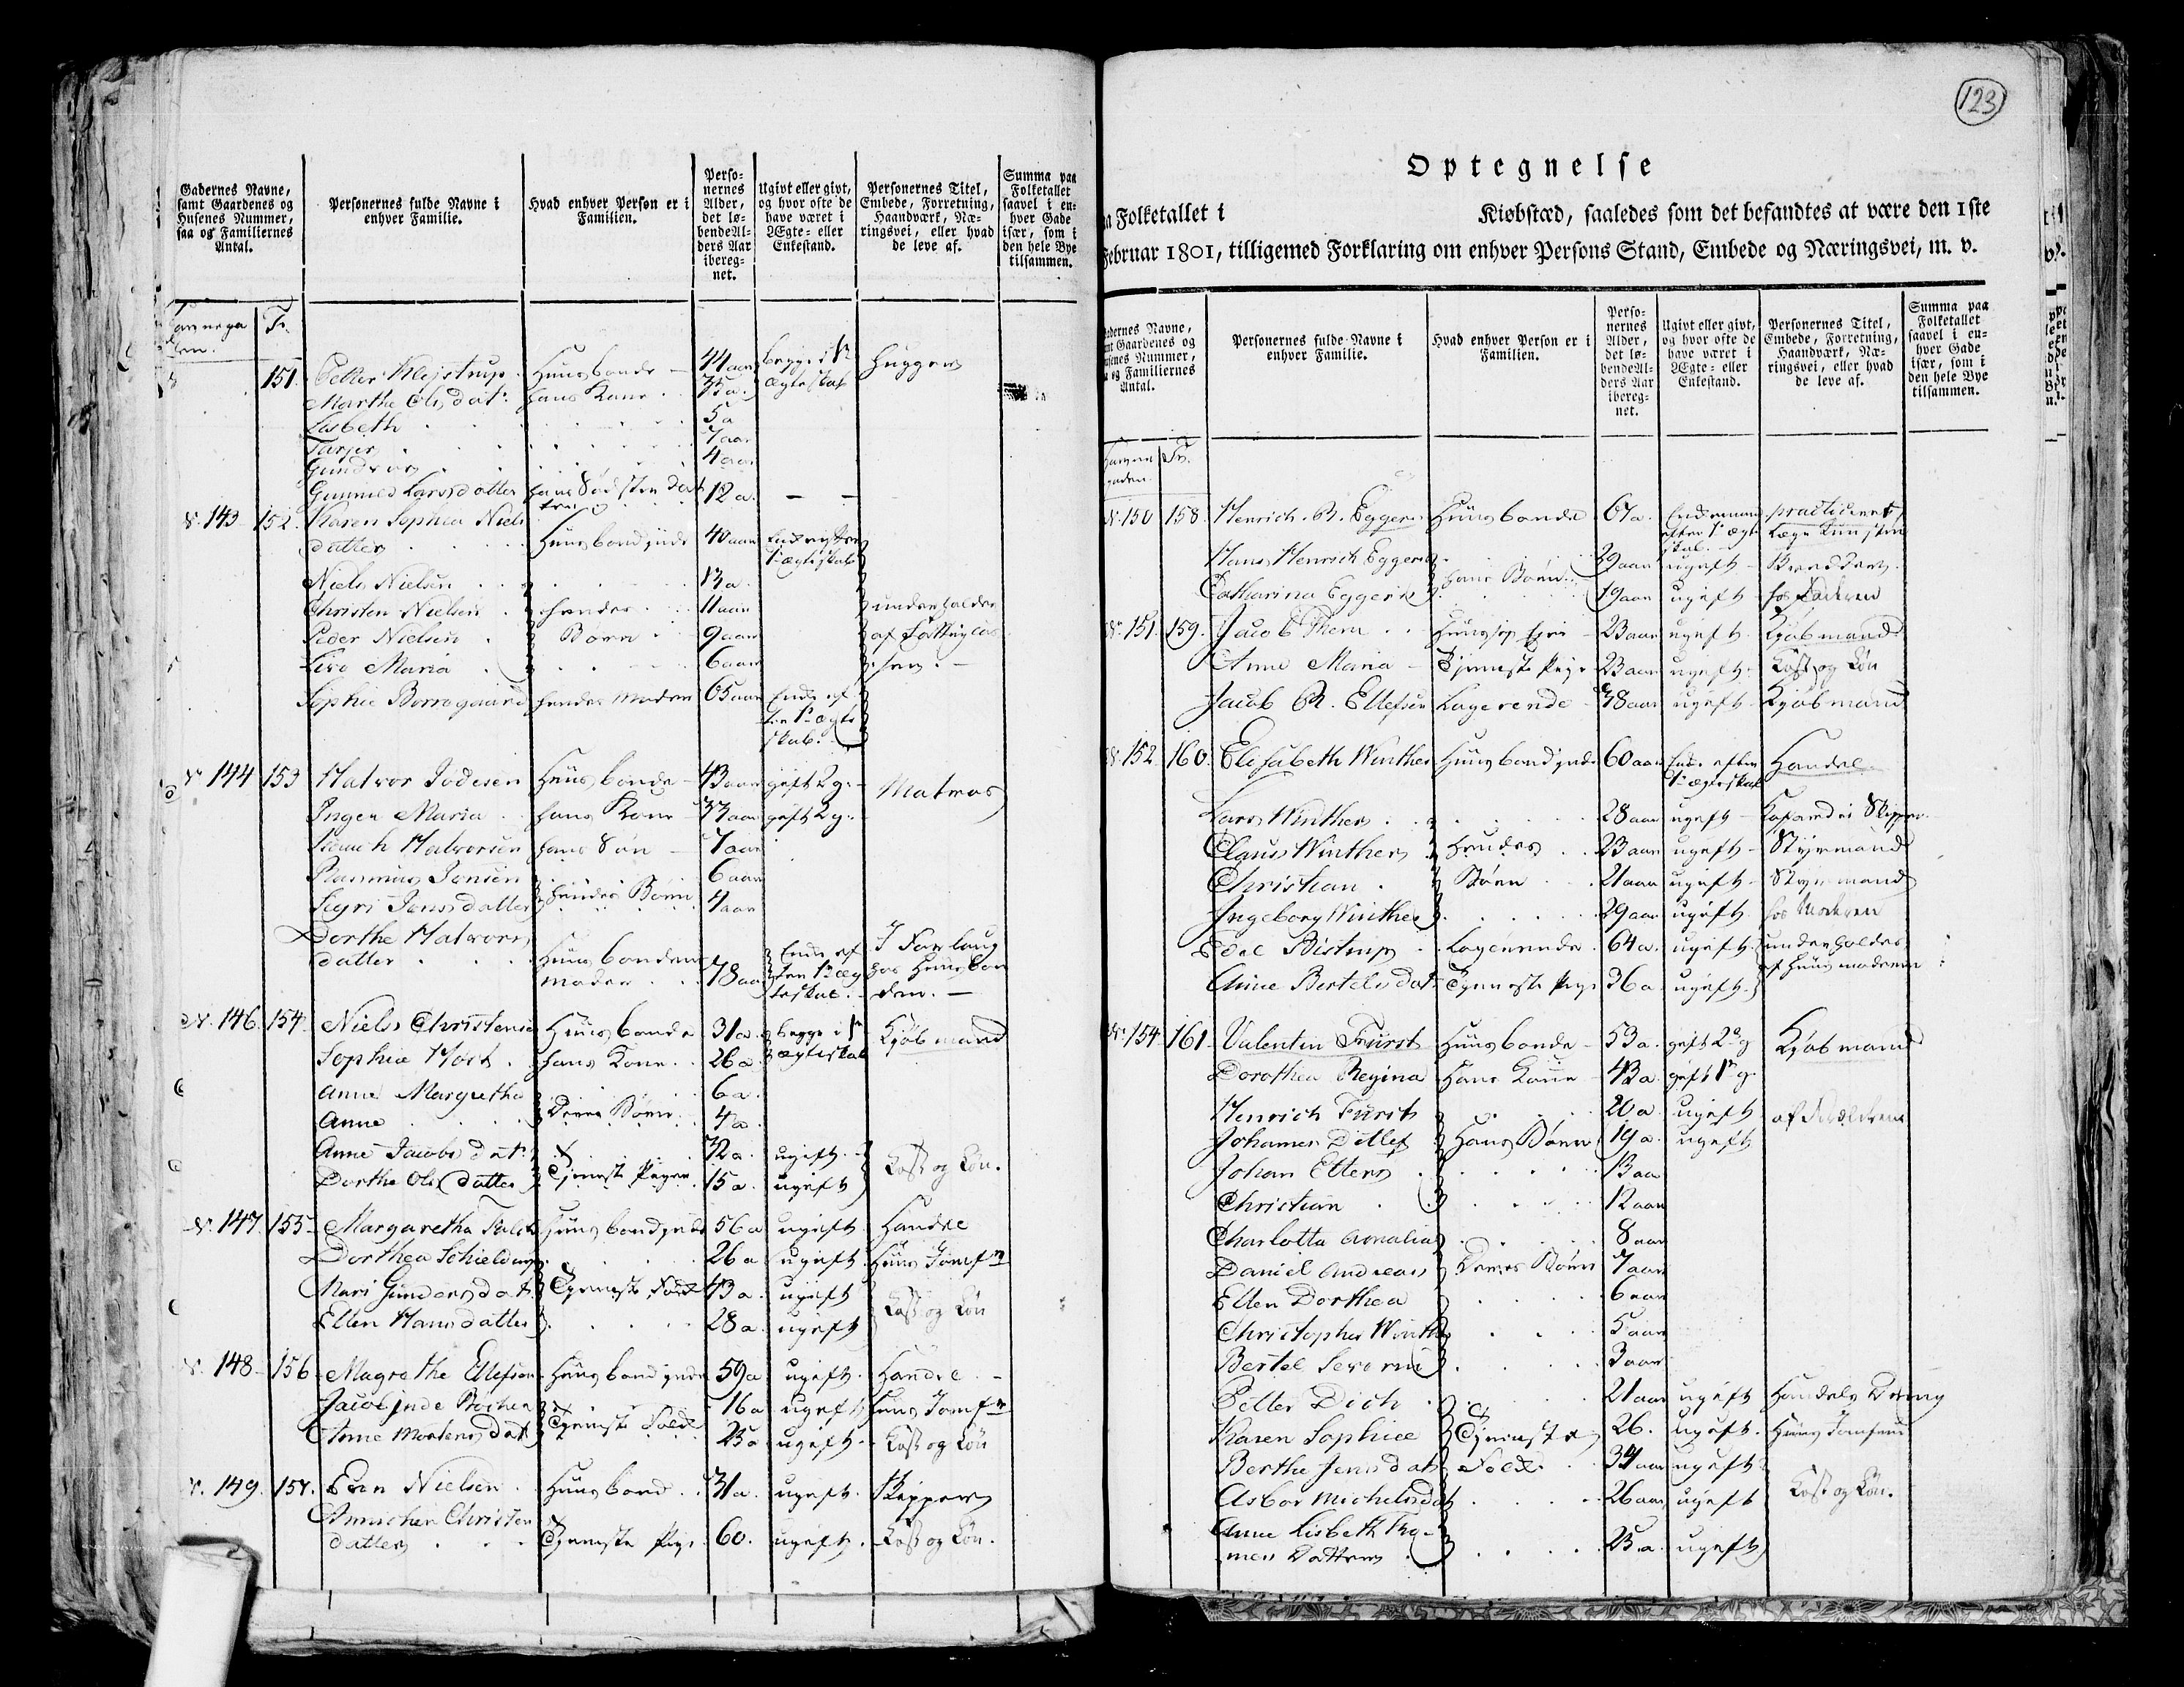 Gadernes Navne,
samt Gaardenes og
Husenes Nummer,
saa og Familiernes
Antal.
Personernes fulde Navne i
enhver Familie.
Hvad enhver Person er i
Familien.
Perso-
nernes
Alder,
det lø-
bende Al-
ders Aar
ibereg-
net.
Ugivt eller givt,
og hvor ofte de
have været i
Ægte- eller
Enkestand.
Personernes Titel,
Embede, Forretning,
Haandværk, Næ-
ringsvei, eller hvad
de leve af.
Summa paa
Folketallet
saavel i en-
hver Gade
især, som i
den hele Bye
tilsammen.
Fr.
151 Petter Klejstrup Huusbonde 44 aar begge i 1te Hugger
Marthe Olsdatr hans Kone 35 a. ægteskab
Lisbeth 5 a
Tarjer 7 aar
Gundror 4 aar
Gunnild Larsdatter hans 12 a.
N. 143 152. Karen Sophia Niels
datter Huusbondinde 40 aar 1te ægteskab
Niels Nielsen 13 a.
Christen Nielsen hendes 11 aar underholdes
Peder Nielsen Børn 9 aar af Fattig
Maria 6 aar
Sophie Borregaard hendes Moder 65 aar Enke ef
1te ægte
skab.
N. 144 153 Halvor Huusbonde 43 aar gift 2 g. Matros
Inger Maria hans Kone 33 aar gift 2 g.
Halvorsen hans Søn 7 aar
Rasmus Jensen 6 aar
Sigri Jensdatter hendes Børn 4 aar
Dorthe Halvors
datter Huusbondens
moder 78 aar Enke ef
ter 1te æg
teskab. hos Huusbon
den.
N. 146. 154. Niels Christensen Huusbonde 31 a. begge i 1te Kjøbmand
Sophie hans Kone 26 a. ægteskab
Anne Margrethe 6 a.
Anne Deres Børn 4 a.
Anne Jacobsdatr 32 a. ugift
Dorthe Olsdatter Tjeneste Piger 15 a. ugift Kost og Løn.
N. 147. 155. Margaretha Falck Huusbondinde 56 a ugift Handel
Dorthea Schielderup 26 a ugift Huus Jomfr
Mari Gundersdatr Tjeneste Folk 43 a. ugift
Ellen Hansdatter 28 a. ugift Kost og Løn
N. 148 156 Magrethe Ellefsen Huusbondinde 59 a ugift Handel
Jacobinde 16 a ugift Huus Jomfr
Anne Mortensdatr Tjeneste Folk 25 a ugift Kost og Løn
N. 149. 157. Even Nielsen Huusbond 31 a. ugift Skipper
Christen
datter Tjeneste Pige 60. ugift Kost og Løn.
123
Optegnelse
Folketallet i Kiøbstæd, saaledes som det befandtes at være den 1ste
Februar 1801, tilligemed Forklaring om enhver Persons Stand, Embede og Næringsvei, m. v.
Gadernes Navne,
samt Gaardenes og
Husenes Nummer,
saa og Familiernes
Antal.
Personernes fulde Navne i
enhver Familie.
Hvad enhver Person er i
Familien.
Perso-
nernes
Alder,
det lø-
bende Al-
ders Aar
ibereg-
net.
Ugivt eller givt,
og hvor ofte de
have været i
Ægte- eller
Enkestand.
Personernes Titel,
Embede, Forretning,
Haandværk, Næ-
ringsvei, eller hvad
de leve af.
Summa paa
Folketallet
saavel i en-
hver Gade
især, som i
den hele Bye
tilsammen.
Fr.
N. 150 158. Henrich Eggers Huusbonde 61 a. Enkemand practicerer
efter 1te ægte
skab. Læge Kunsten
Hans Henrich Eggers 29 aar ugift
Catharina Eggers hans Børn 19 aar ugift hos Faderen
N. 151. 159. Jacob Huus 23 aar ugift Kjøbmand
Anne Maria Tjeneste Pige 23 aar ugift Kost og Løn
Jacob Ellefsen Logerende 38 aar ugift Kjøbmand
N. 152. 160. Elisabeth Winther Huusbondinde 60 aar Enke efter Handel
1te ægteskab
Lars Winther 28 aar ugift
Claus Winther hendes 23 aar ugift Styrmand
Christian Børn 21 aar ugift Styrmand
Ingeborg Winther 29 aar ugift hos Moderen
Edel Bistrup Logerende 64 a. ugift underholdes
Anne Bertelsdatr Tjeneste Pige 36 a ugift af Huusmoderen
N. 154. 161. Valentin Fürst Huusbonde 53 a. gift 2 g Kjøbmand
Dorothea Regina Hans Kone 43 a. gift 1te g
Henrich Fürst 20 a ugift af Forældrene
Johannes Ditlef Hans Børn 19 a. ugift
Johan Ellers 13 aar
Christian 12 aar
Charlotta Amalia 8 aar
Daniel Andreas Deres Børn 7 aar
Ellen Dorthea 6 aar
Christopher Winther 5 aar
Bertel 3 aar
Petter Dich 21 aar ugift Handels Dreng
Karen Sophie Tjeneste 26. ugift Huus Jomfrue
Berthe Jensdatr Folk 34 aar ugift
Asbor Michelsdatr 26 aar ugift Kost og Løn.
Anne Lisbeth
datter 23. a ugift